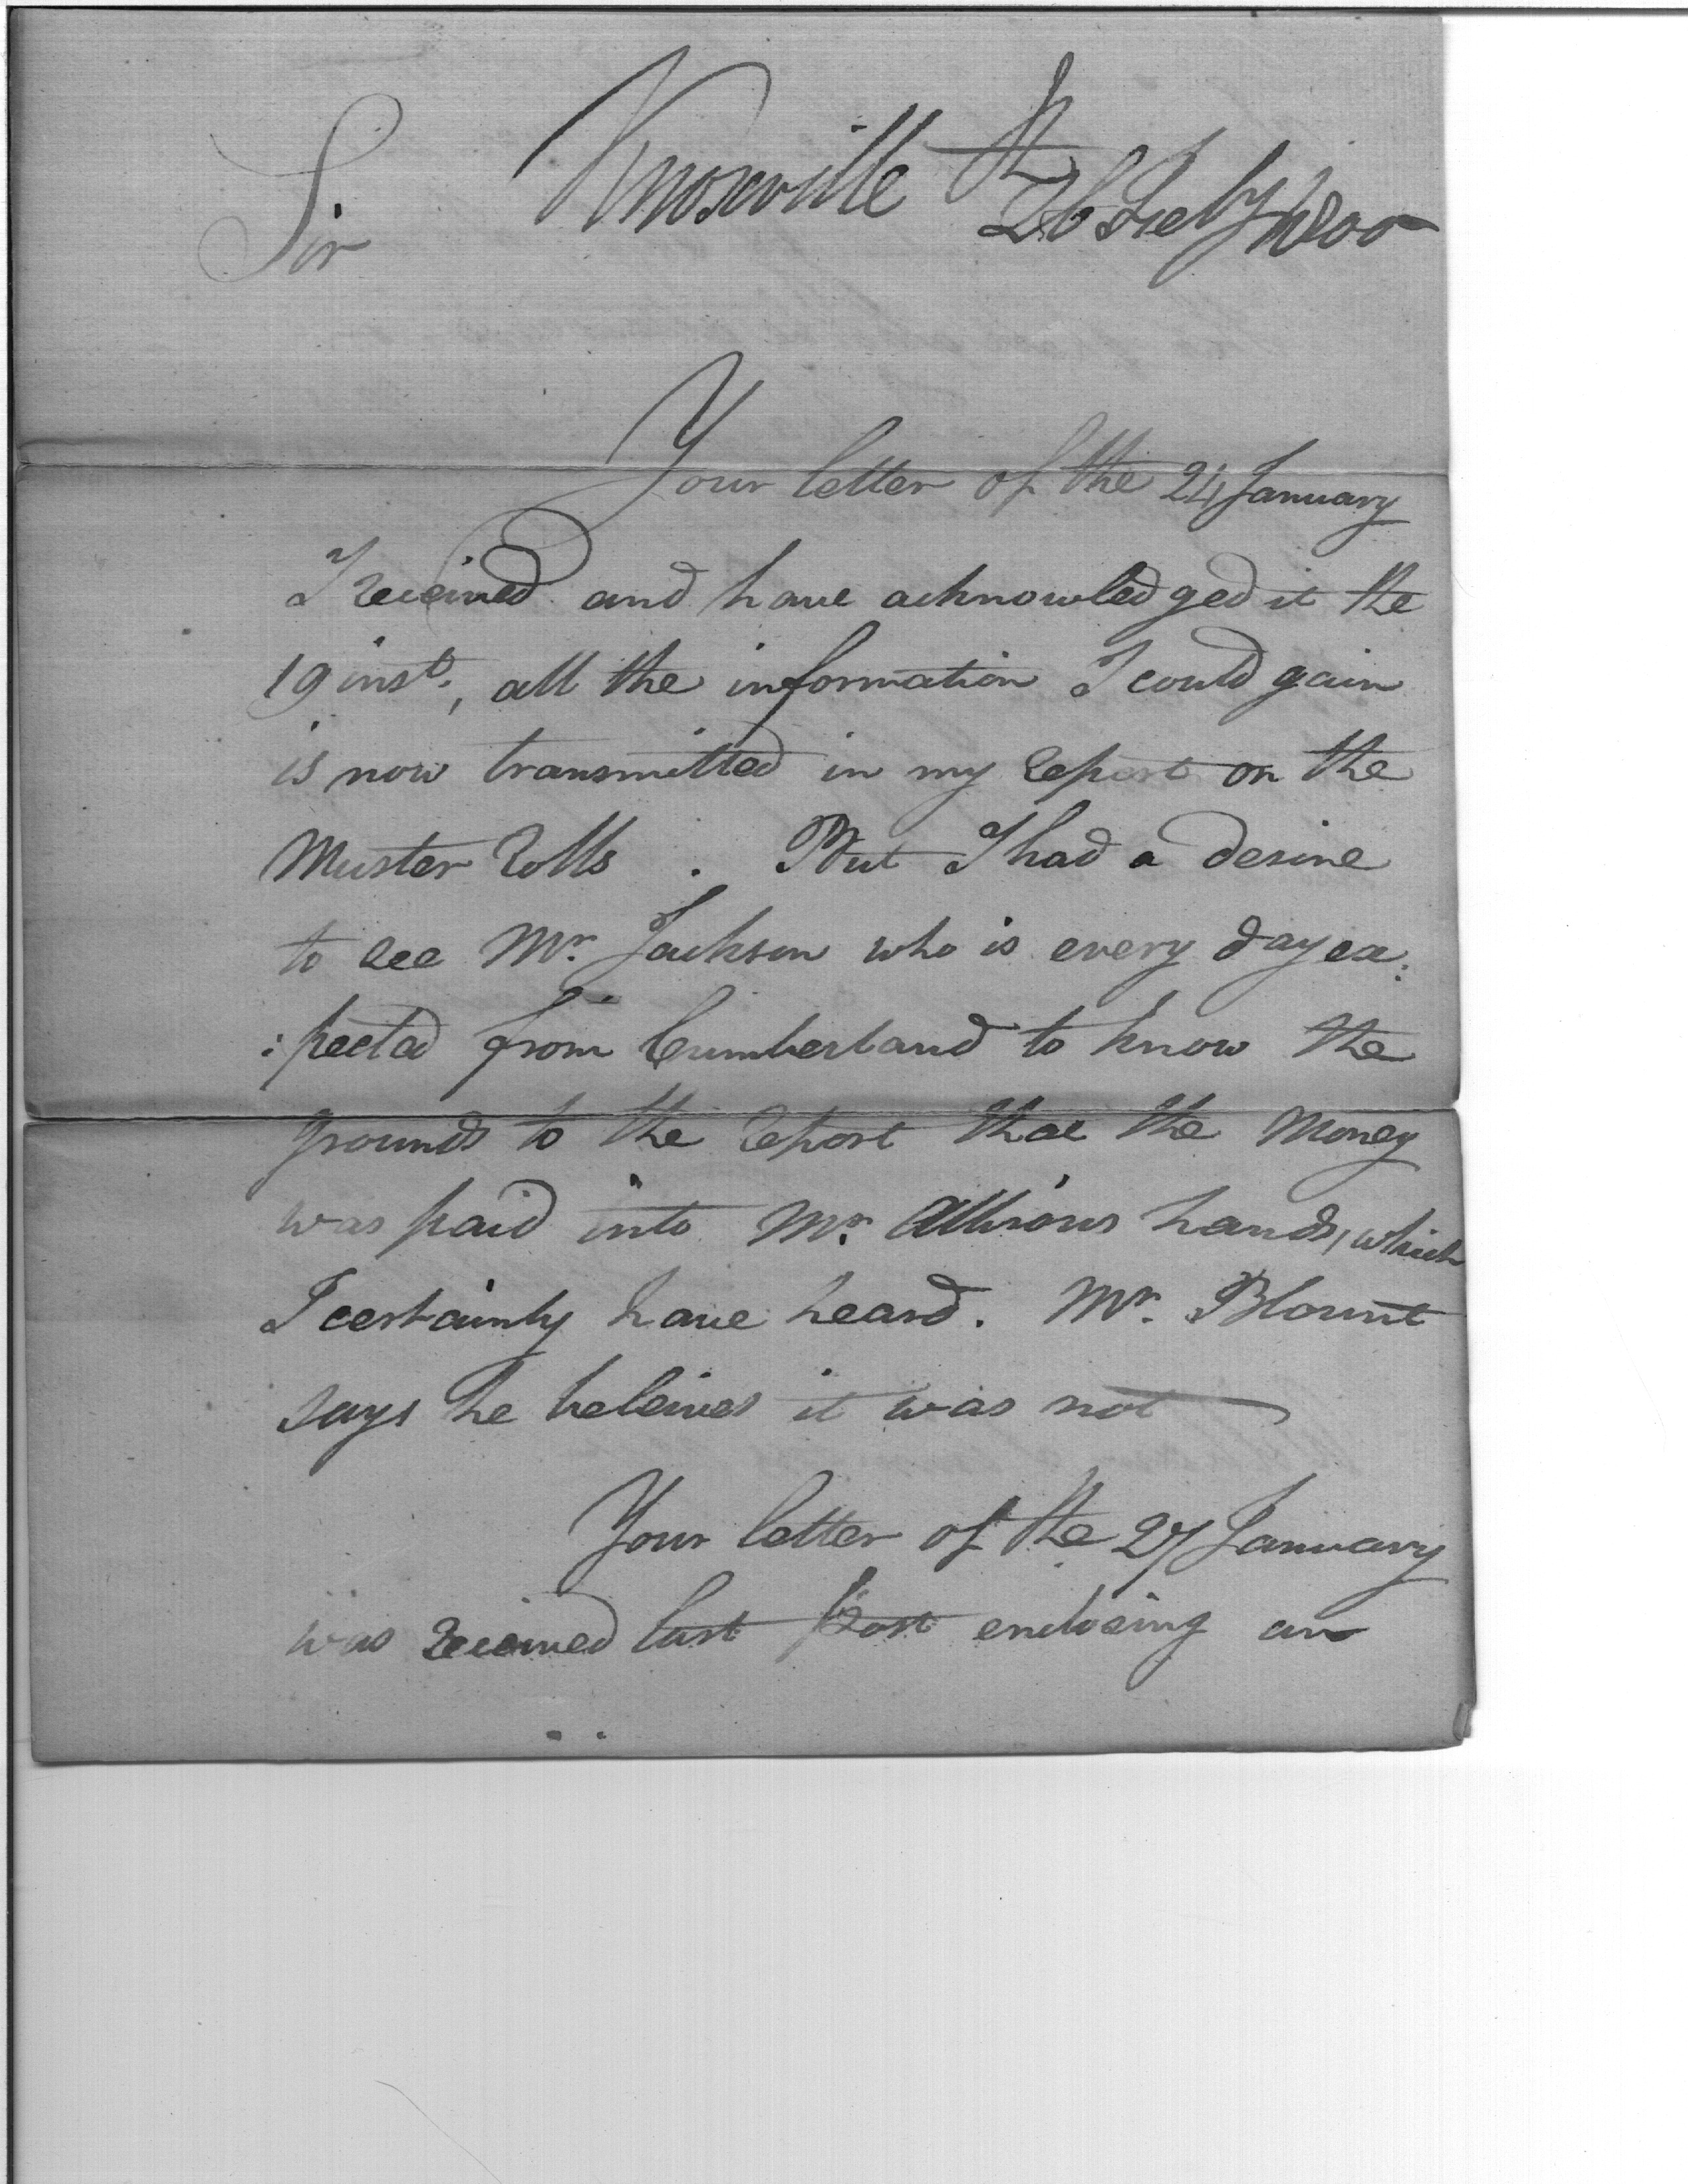 Sir Knoxville 26th Feby 1800
Your letter of the 24 January
I received and have acknowledged it the
19 inst., all the information I could gain
is now transmitted in my report on the
Muster Rolls . But I had a desire
to see Mr. Jackson who is every day ex:
:pected from Cumberland to know the
grounds to the report that the Money
was paid into Mr. Allisons hands, which
I certainly have heard. Mr. Blount
says he beleives it was not
Your letter of the 27 January
was received last post enclosing an